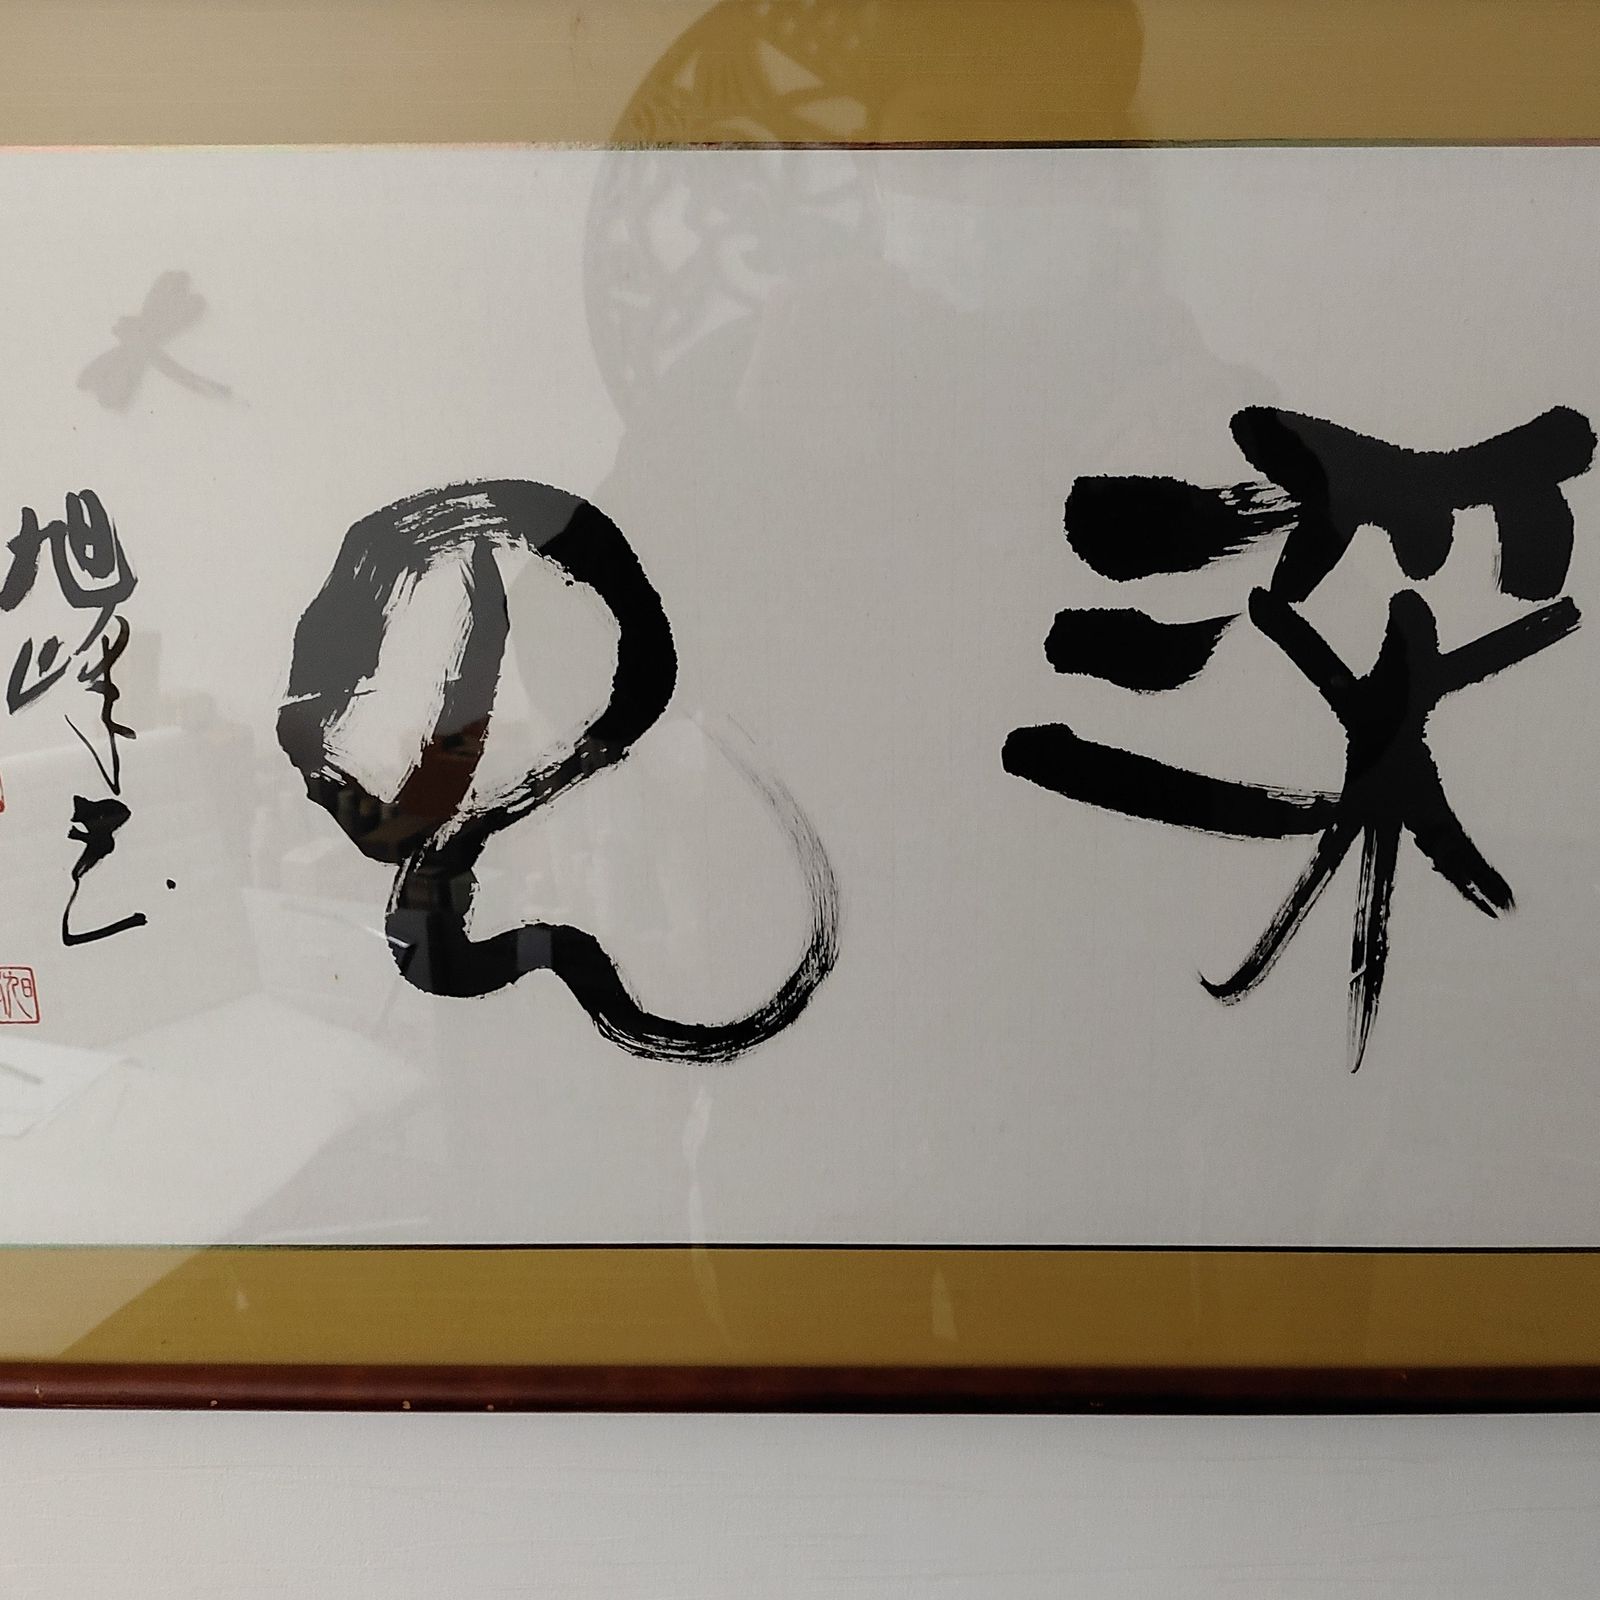 深思
旭峰书